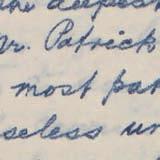 the deepest
Mr. Patrick
most pat
seless un